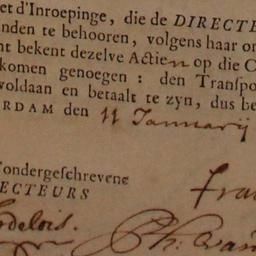 et d'Inroepinge, die de DIRECTE
nden te behooren, volgens haar on
nt bekent dezelve Actien op die C
komen genoegen: den Transpo
voldaan en betaalt te zyn, dus be
ERDAM den 11 Januarij
ondergeschrevene
ECTEURS
Fra
rdelois.
Ph: van